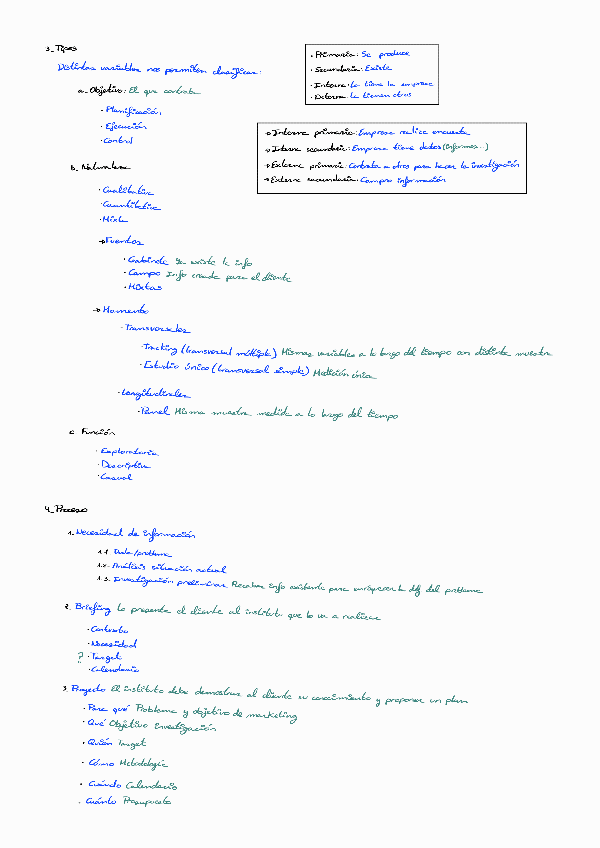 3_ Tipos
Distintas variables nos permiten clasificar:
a_ Objetivo: El que contrata
· Planificación
· Ejecución
· Control
· Primaria: Se produce
· Secundaria: Existe
· Interna: La tiene la empresa
· Externa: La tienen otros
→ Interna primaria: Empresa realiza encuesta
→ Interna secundaria: Empresa tiene datos (informes..)
→ Externa primaria: Contrata a otros para hacer la investigación
→ Externa secundaria: Compra información
b. Naturaleza
· Cualitativa
· Cuantitativa
· Mixta
→ Fuentes
· Gabinete Ya existe la info
· Campo Info creada para el cliente
· Mixtas
→ Momento
· Transversales
· Tracking (transversal múltiple) Mismas variables a lo largo del tiempo con distinta muestra
· Estudio único (transversal simple) Medición única
· Longitudinales
· Panel Misma muestra medida a lo largo del tiempo
c. Función
· Exploratoria
· Descriptiva
· Causal
4_ Proceso
1. Necesidad de información
1.1. Duda/problema
1.2. Análisis situación actual
1.3. Investigación preliminar Recabar info existente para enriquecer la df del problema
2. Briefing Lo presenta el cliente al instituto que lo va a realizar
· Contexto
· Necesidad
? · Target
· Calendario
3. Proyecto El instituto debe demostrar al cliente su conocimiento y proponer un plan
· Para qué Problema y objetivo de marketing
· Qué Objetivo investigación
· Quién Target
· Cómo Metodología
· Cuándo Calendario
· Cuánto Presupuesto